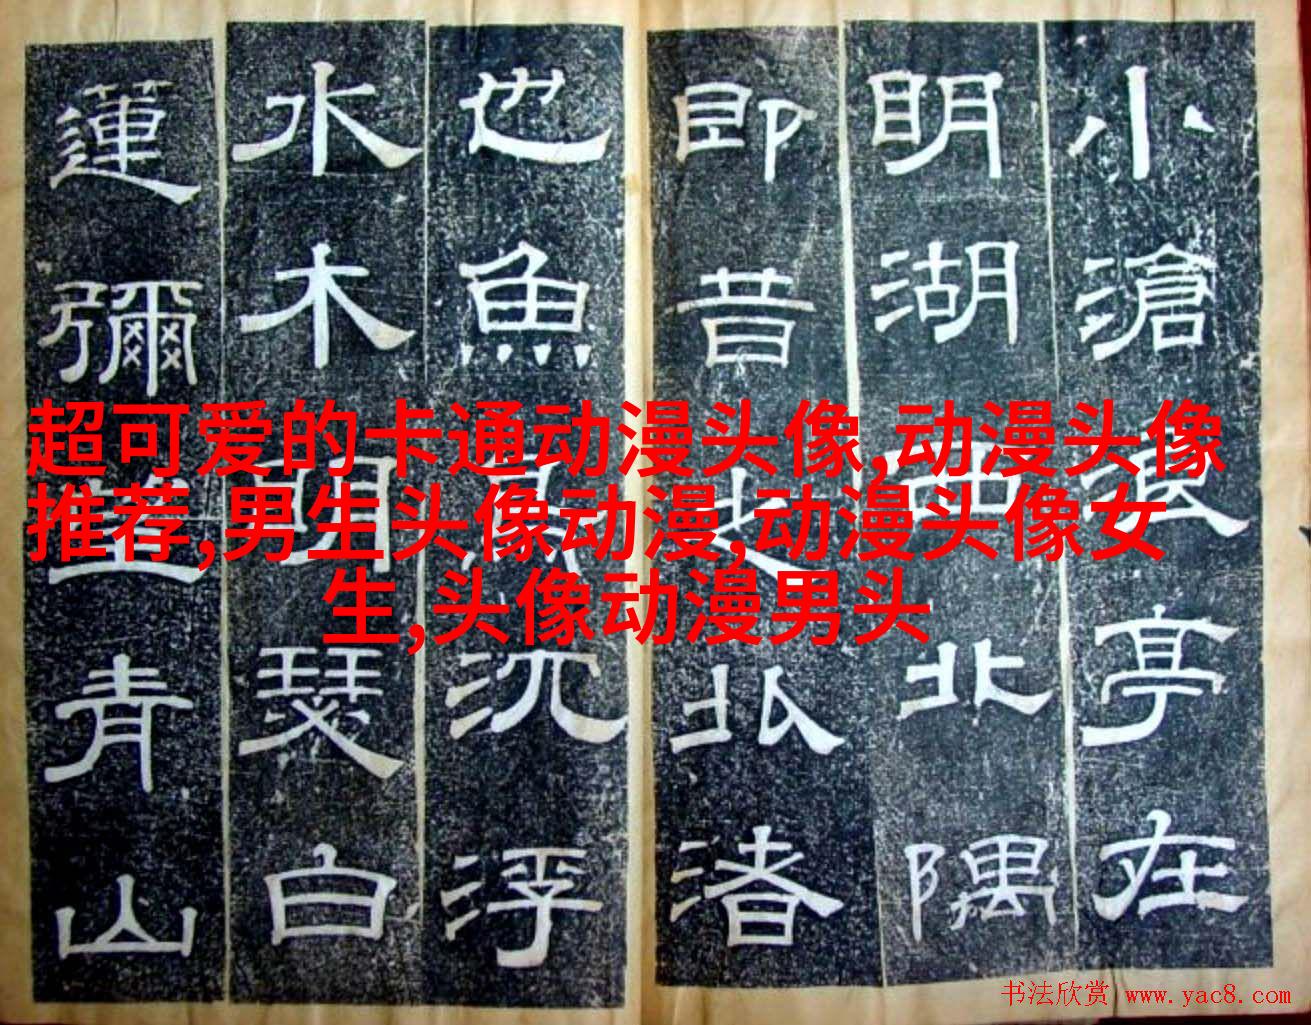 小滄浪亭在
明湖西北隅
即昔之北渚
也魚沉浮
水木明瑟白
蓮彌望青山
超可爱的卡通动漫头像,动漫头像
推荐,男生头像动漫,动漫头像女
生,头像动漫男头
书法欣赏 www.yac8.com